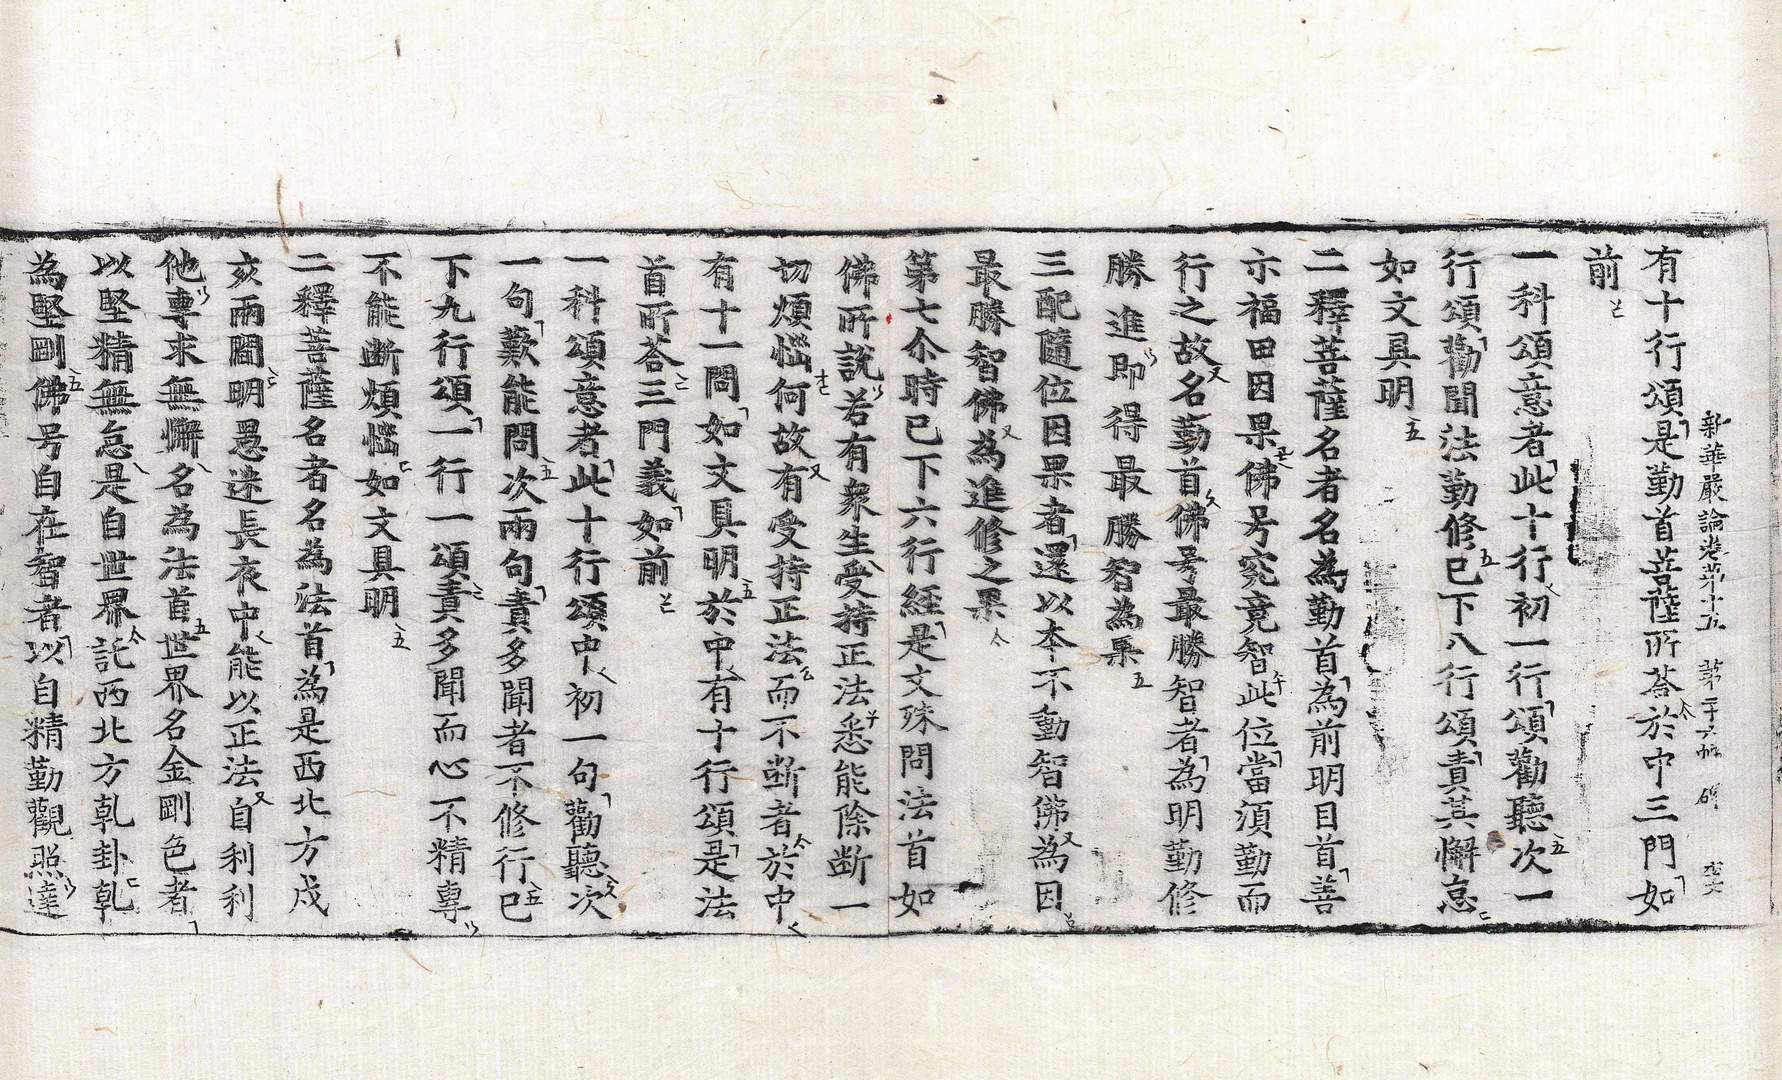 新華嚴論卷第十五 第二十六幅 碑
有十行頌是勤首菩薩所荅於中三門如
前
一科頌意者此十行初一行頌勸聽次一
行頌勸聞法勤修已下八行頌責其懈怠
如文具明
二釋菩薩名者名為勤首為前明目首善
示福田因果佛号究竟智此位當須勤而
行之故名勤首佛号最勝智者為明勤修
勝進即得最勝智為果
三配隨位因果者還以本不動智佛為因
最勝智佛為進修之果
第七尒時已下六行經是文殊問法首如
佛所說若有衆生受持正法悉能除断一
切煩惱何故有受持正法而不断者於中
有十一問如文具明於中有十行頌是法
首所荅三門義如前
一科頌意者此十行頌中初一句勸聽次
一句歎能問次兩句責多聞者不修行已
下九行頌一行一頌責多聞而心不精專
不能断煩惱如文具明
二釋菩薩名者名為法首為是西北方戍
亥兩圖明愚迷長夜中能以正法自利利
他專求無懈名為法首世界名金剛色者
以堅精無怠是自世界託西北方乹卦乹
為堅剛佛号自在智者以自精勤觀照達